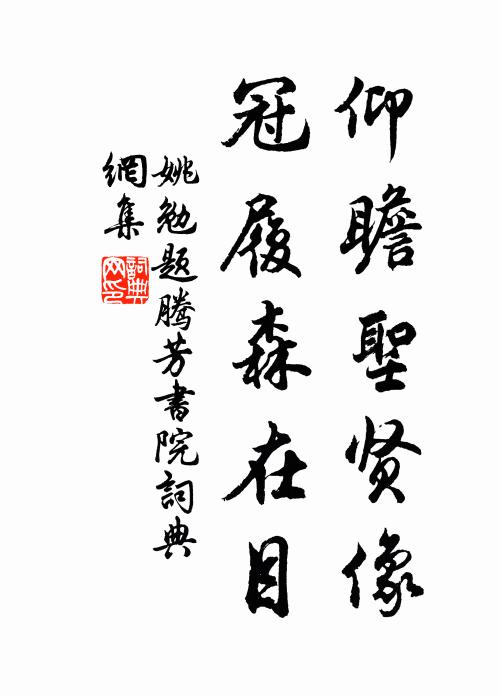 仰瞻聖贤像
冠履森在目
姚勉题腾芳書院詞典
網集
詞典網印